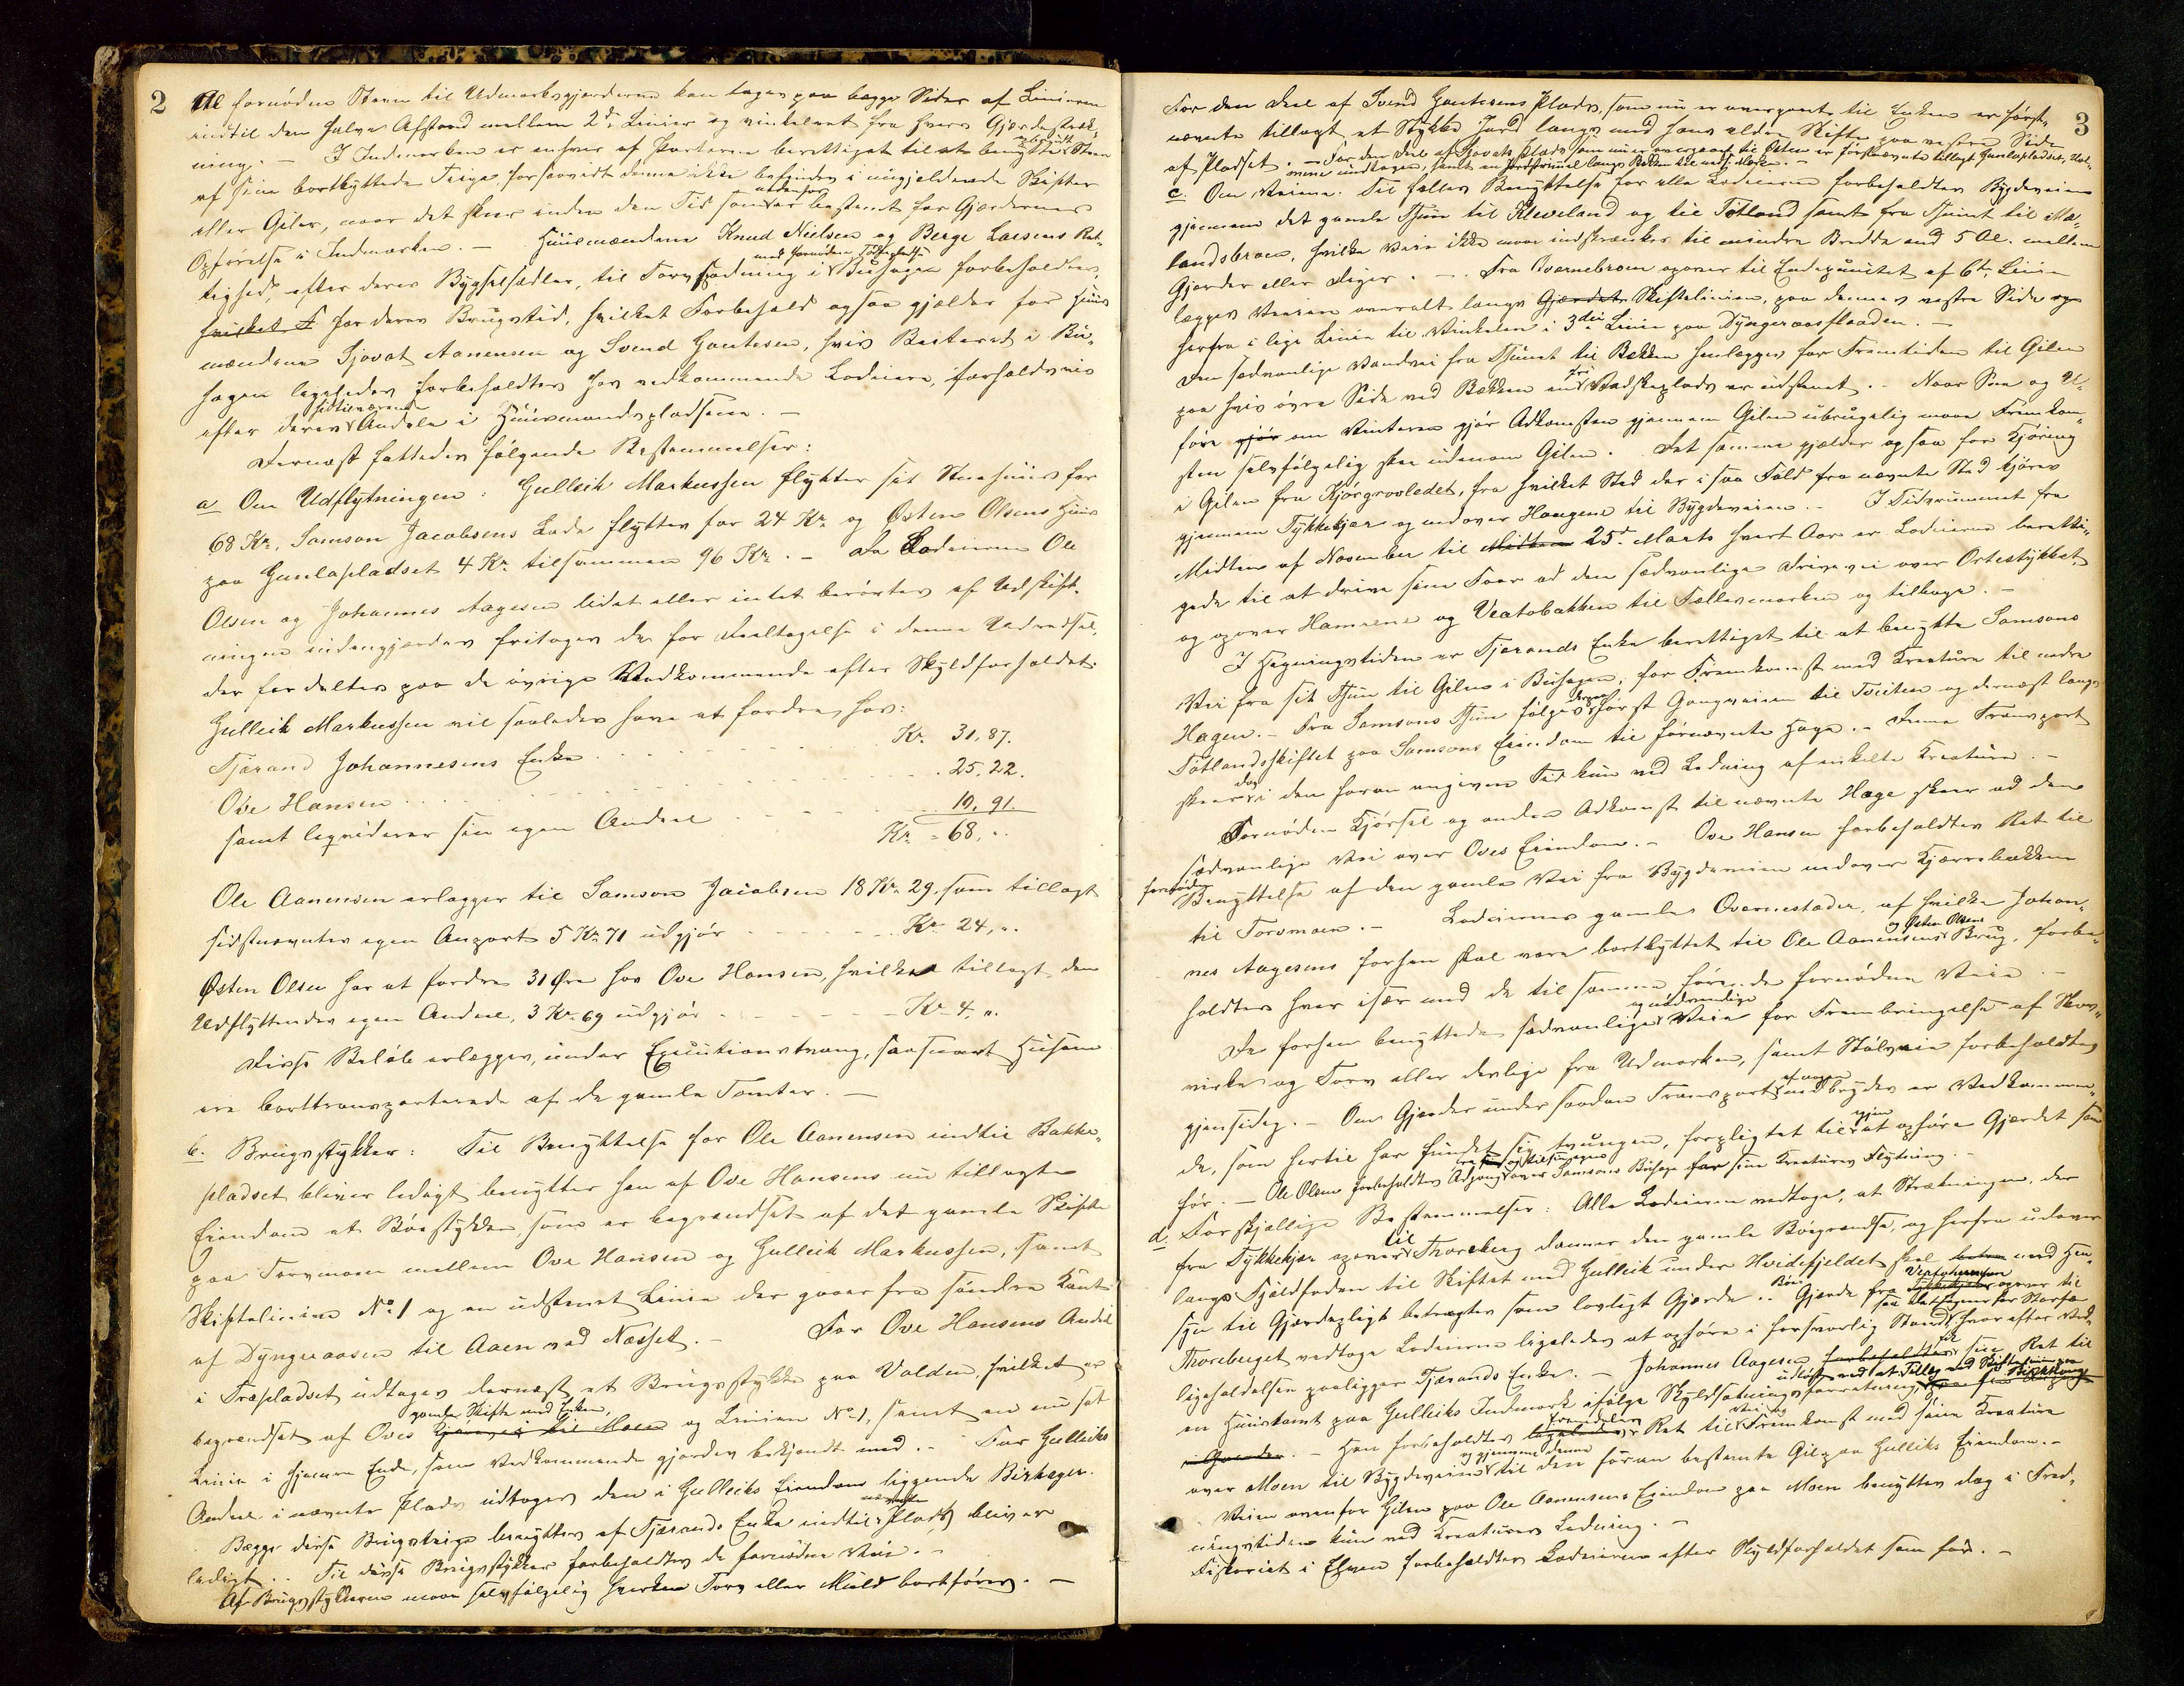 2
Al fornøden Steen til Udmarksgjærderne kan tages paa begge Sider af Linierne
indtil den halve Afstand mellem 2de Linier og vinkelret fra hvers Gjærdestræk-
ning. — I Indmarken er enhver af Parterne berettiget til at benytte Steen
af sine bortbyttede Teige forsaavidt denne ikke befindes i nugjældende Skifter
eller Giler, naar det skeer inden den Tid som nedenfor er bestemt for Gjærdernes
Opførelse i Indmarken. — Huusmændene Knud Nielsen og Berge Larsens Ret-
med fornøden Tilførsel
tighed, efter deres Bygselsedler, til Torvskjæring i Buhagen forbeholdes,
hvilket F for deres Brugstid, hvilket Forbehold ogsaa gjælder for Huus
mændene Sjovat Aanensen og Svend Gautesen, hvis Beiteret i Bu-
hagen ligeledes forbeholdes hos vedkommende Lodeiere, forholdsvis
efter deres Andele i Huusmandspladsene. —
Dernæst fattedes følgende Bestemmelser:
a Om Udflytningen: Gulleik Markussen flytter sit Stuehuus for
68 Kr. Samson Jacobsens Lade flyttes for 24 Kr. og Østen Olsens Huus
paa Gunlapladset 4 Kr. tilsammen 96 Kr. — Da Lodeierne Ole
Olsen og Johannes Aagesen lidet eller intet berøres af Udskift-
ningen indengjærdes fritages de for Deeltagelse i denne Udredsel,
der fordeltes paa de øvrige Vedkommende efter Skyldforholdet.
Gulleik Markussen vil saaledes have at fordre hos:
Tjærand Johannesens Enke . . . Kr. 31,87.
Ove Hansen . . . 25,22.
samt liqviderer sin egen Andeel . . . 10,91.
Kr. = 68, "
Ole Aanensen erlægger til Samson Jacobsen 18 Kr. 29. som tillagt
sidstnævntes egen Anpart 5 Kr. 71 udgjør . . . Kr. 24, ".
Østen Olsen har at fordre 31 Øre hos Ove Hansen, hvilket tillagt den
Udflyttendes egen Andeel, 3 Kr. 69 udgjør . . . Kr. 4, ".
Disse Beløb erlægges, under Executionstvang, saasnart Husene
ere borttransporterede af de gamle Tomter. —
b. Brugsstykker: Til Benyttelse for Ole Aanensen indtil Bakke-
pladset bliver ledigt benytter han af Ove Hansens nu tillagte
Eiendom et Bøestykke, som er begrændset af det gamle Skifte
paa Torvmoen mellem Ove Hansen og Gulleik Markussen, samt
Skiftelinien No 1 og en udstenet Linie der gaaer fra søndre Kant
af Dyngeaasen til Aaen ved Næsset. — For Ove Hansens Andel
i Træpladset udtages dernæst et Brugsstykke paa Volden, hvilket er
gamle Skifte med Enken,
begrændset af Oves og Linien No 1, samt en nu sat
Linie i hjemre Ende, som Vedkommende gjordes bekjendt med. — For Gulleiks
Andeel i nævnte Plads udtages den i Gulleiks Eiendom liggende Birkager.
Begge disse Brugsteige benyttes af Tjærands Enke indtil nævnte Plads bliver
ledigt. — Til disse Brugsstykker forbeholdes de fornødne Veie. —
Af Brugsstykkerne maa selvfølgelig hverken Torv eller Muld bortføres. —
3
For den Deel af Svend Gautesens Plads, som nu er overgaaet til Enken er først-
nævnte tillagt et Stykke Jord langs med hans ældre Skifte paa vestre Side
af Pladset. — For den Deel af Sjovats Plads som nu er overgaaet til Østen er førstnævnte tillagt Gunlapladset,
c Om Veiene. Til fælles Benyttelse for alle Lodeierne forbeholdtes Bygdeveien
gjennem det gamle Thun til Kleveland og til Tøtland samt fra Thunet til Mæ-
landsbroen, hvilke Veie ikke maa indskrænkes til mindre Bredde end 5 Al. mellem
Gjærder eller Diger. — Fra Qvernebroen opover til Endepunktet af 6te Linie
lægges Veien overalt langs Gjærdet Skiftelinien, paa dennes vestre Side og
herfra i lige Linie til Vinkelen i 3die Linie paa Dyngeaasflaaden. —
Den sædvanlige Vandvei fra Thunet til Bækken henlægges for Fremtiden til Gilen
paa hvis øvre Side ved Bækken en fri Vadskeplads er udstenet. — Naar Snee og U-
føre gjør om Vinteren gjør Adkomsten gjennem Gilen ubrugelig maa Fremkom-
sten selvfølgelig skee udenom Gilen. Det samme gjælder ogsaa for Kjøring
i Gilen fra Kjørgrovledet, fra hvilket Sted der i saa Fald fra nævnte Sted kjøres
gjennem Tykkekjær og nedover Haugene til Bygdeveien. — I Tidsrummet fra
Midten af November til Midten 25de Marts hvert Aar er Lodeierne beretti-
gede til at drive sine Faar ad den sædvanlige Drivevei over Ortestykket,
og opover Hamrene og Veatobakken til Fællesmarken og tilbage. —
I Hegningstiden er Tjærands Enke berettiget til at benytte Samsons
Vei fra sit Thun til Gilen i Buhagen, for Fremkomst med Kreature til nedre
Hagen. — Fra Samsons Thun følges først Gangveien til Tveiten og dernæst langs
Tøtlandsskiftet paa Samsons Eiendom til førnævnte Hage. — Denne Transport
skeer dog i den foran angivne Tid kun ved Ledning af enkelte Kreature. —
Fornøden Kjørsel og anden Adkomst til nævnte Hage skeer ad den
sædvanlige Vei over Oves Eiendom. — Ove Hansen forbeholdtes Ret til
fornøden
Benyttelse af den gamle Vei fra Bygdeveien nedover Kjærrebakken
til Torvmoen. — Lodeiernes gamle Qvernestæder, af hvilke Johan-
og Østen Olsens
nes Aagesens forhen skal være bortbyttet til Ole Aanensens Brug, forbe-
holdtes hver især med de til samme hørende fornødne Veie. —
og nødvendige
De forhen benyttede sædvanlige Veie for Frembringelse af Skov-
virke og Torv eller deslige fra Udmarken, samt Stølsveie forbeholdtes
gjensidig. — Om Gjærder under saadan Transport af nogen nedbrydes er Vedkommen-
de, som hertil har fundet sig tvungen, forpligtet til igjen at opføre Gjærdet som
før. — Ole Olsen forbeholdtes Adgang over Samsons Buhage for sine Kreatures Flytning. —
d. Forskjællige Bestemmelser: Alle Lodeierne vedtoge, at Strækningen, der
fra Tykkekjær opover til Thoreberg danner den gamle Bøegrændse, og herfra udover
langs Fjeldfoden til Skiftet med Gulleik under Hvidefjeldet skal med Hen-
syn til Gjærdepligt betragtes som lovligt Gjærde. — Bøe Gjærde fra opover til
Thoreberget vedtoge Lodeierne ligeledes at opføre i forsvarlig Stand, hvorefter Ved-
ligeholdelsen paaligger Tjærands Enke. — Johannes Aagesen sin Ret til
en Huustomt paa Gulleiks Indmark ifølge Skyldsætningsforretning
Han forbeholdtes Ret til Fremkomst med sine Kreature
og gjennem denne
over Moen til Bygdeveien til den foran bestemte Gil paa Gulleiks Eiendom. —
Veien ovenfor Gilen paa Ole Aanensens Eiendom paa Moen benyttes dog i Fred-
ningstiden kun ved Kreatures Ledning. —
Fiskeriet i Elven forbeholdtes Lodeierne efter Skyldforholdet som før. —